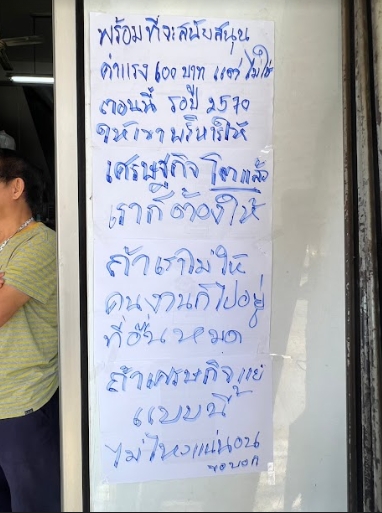 พร้อมที่จะสนับสนุน
ค่าแรง 600 บาท แต่ไม่ใช่
ตอนนี้ รอปี 2570
ให้เขาบริหารให้
เศรษฐกิจ โตแล้ว
เราก็ต้องให้
ถ้าเราไม่ให้
คนงานก็ไปอยู่
ที่อื่นหมด
ถ้าเศรษฐกิจแย่
แบบนี้
ไม่ไหวแน่นอน
ขอบอก